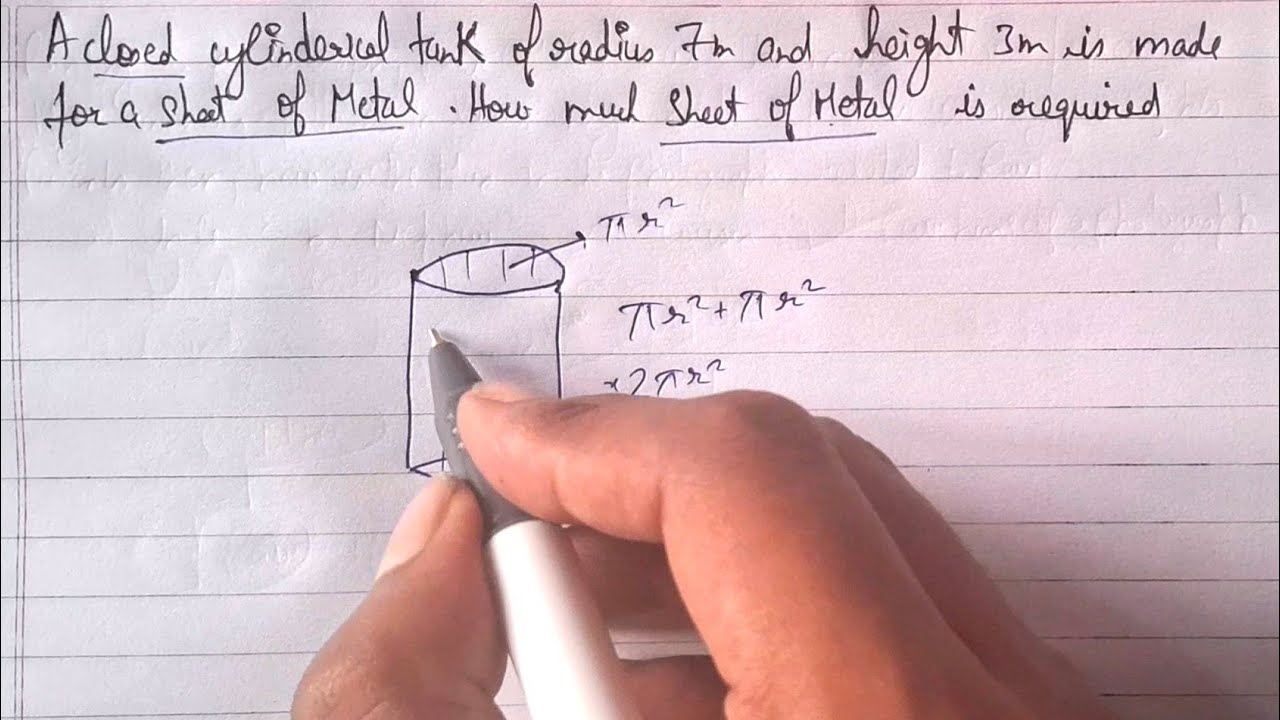 A closed cylinderical tank of radius 7m and height 3m is made
for a sheet of Metal. How much sheet of Metal is required
πr²
πr² + πr²
2πr²